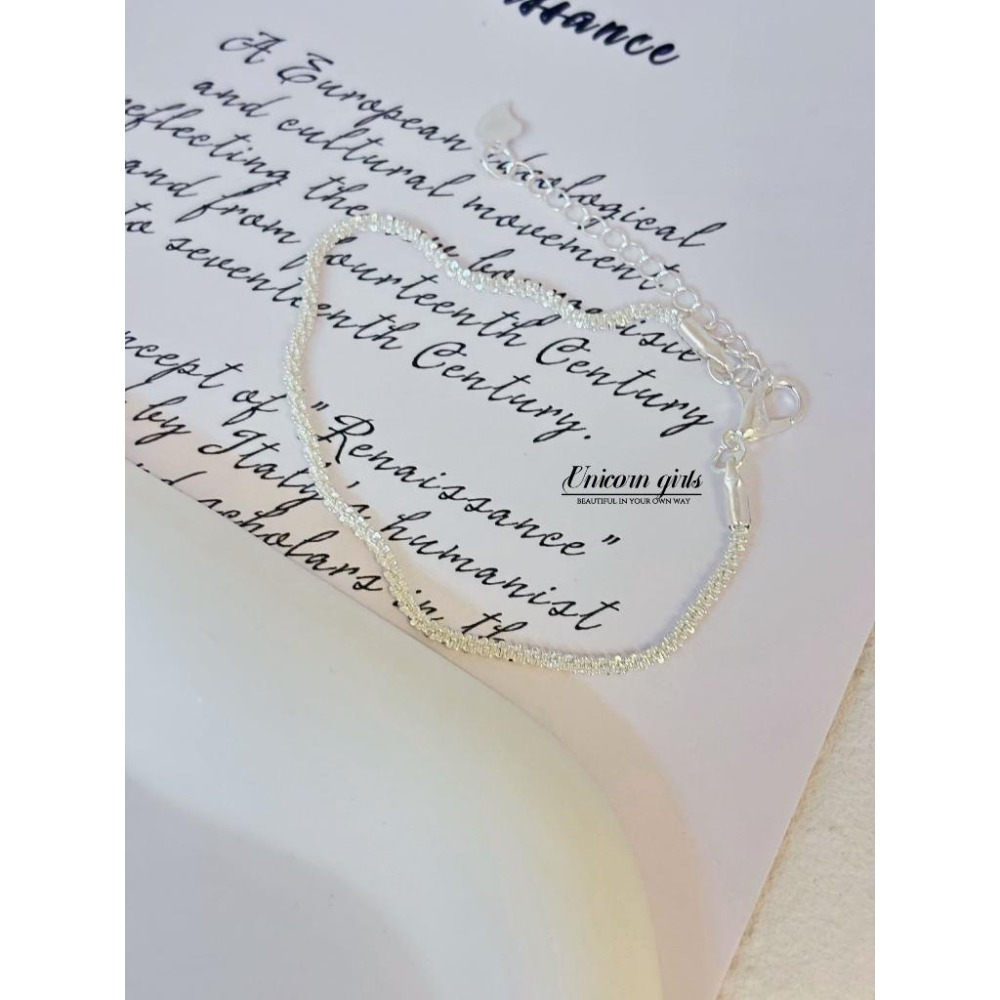 A European ideological
and cultural movement
reflecting the bourgeoisie
and from fourteenth Century
to seventeenth Century.
of "Renaissance"
by Italy's humanist
scholars in
Unicorn girls
BEAUTIFUL IN YOUR OWN WAY